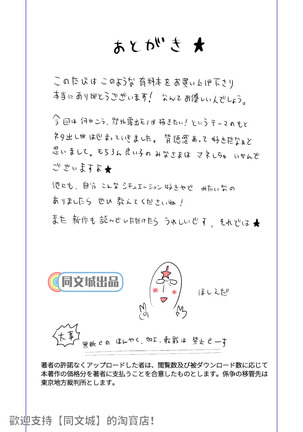 あとがき★
このたびはこのような有料本をお買い上げ下さり
本当にありがとうございます! なんてお優しい人でしょう。
今回は何かこう、野外露出モノが描きたい!というテーマのもと
ネタ出しをはじめていきました。背徳感あって好きだなぁと
思いまして。もちろん良い子のみなさまは マネしちゃ いかんで
ございますよ★
他にも、自分 こんな シチュエーション好きやで みたいなの
ありましたら ぜひ教えてくださいね!
また 新作も 読んでいただけたら うれしいです、それでは★
同文城出品
はしえだ
大事
無断での ほんやく、加工、転載は 禁止でーす
著者の許諾なくアップロードした者は、閲覧数及び被ダウンロード数に応じて
本著作の価格分を著者に支払うことを合意したものとします。係争の移管先は
東京地方裁判所とします。
歡迎支持【同文城】的淘寶店!